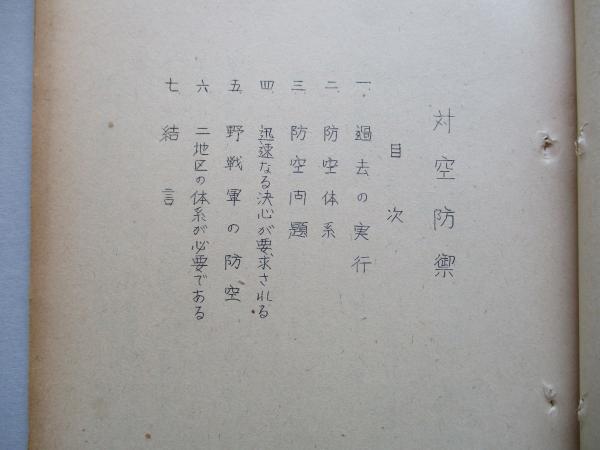 対空防禦
目次
一、過去の実行
二、防空体系
三、防空問題
四、迅速なる決心が要求される
五、野戦軍の防空
六、二地区の体系が必要である
七、結言